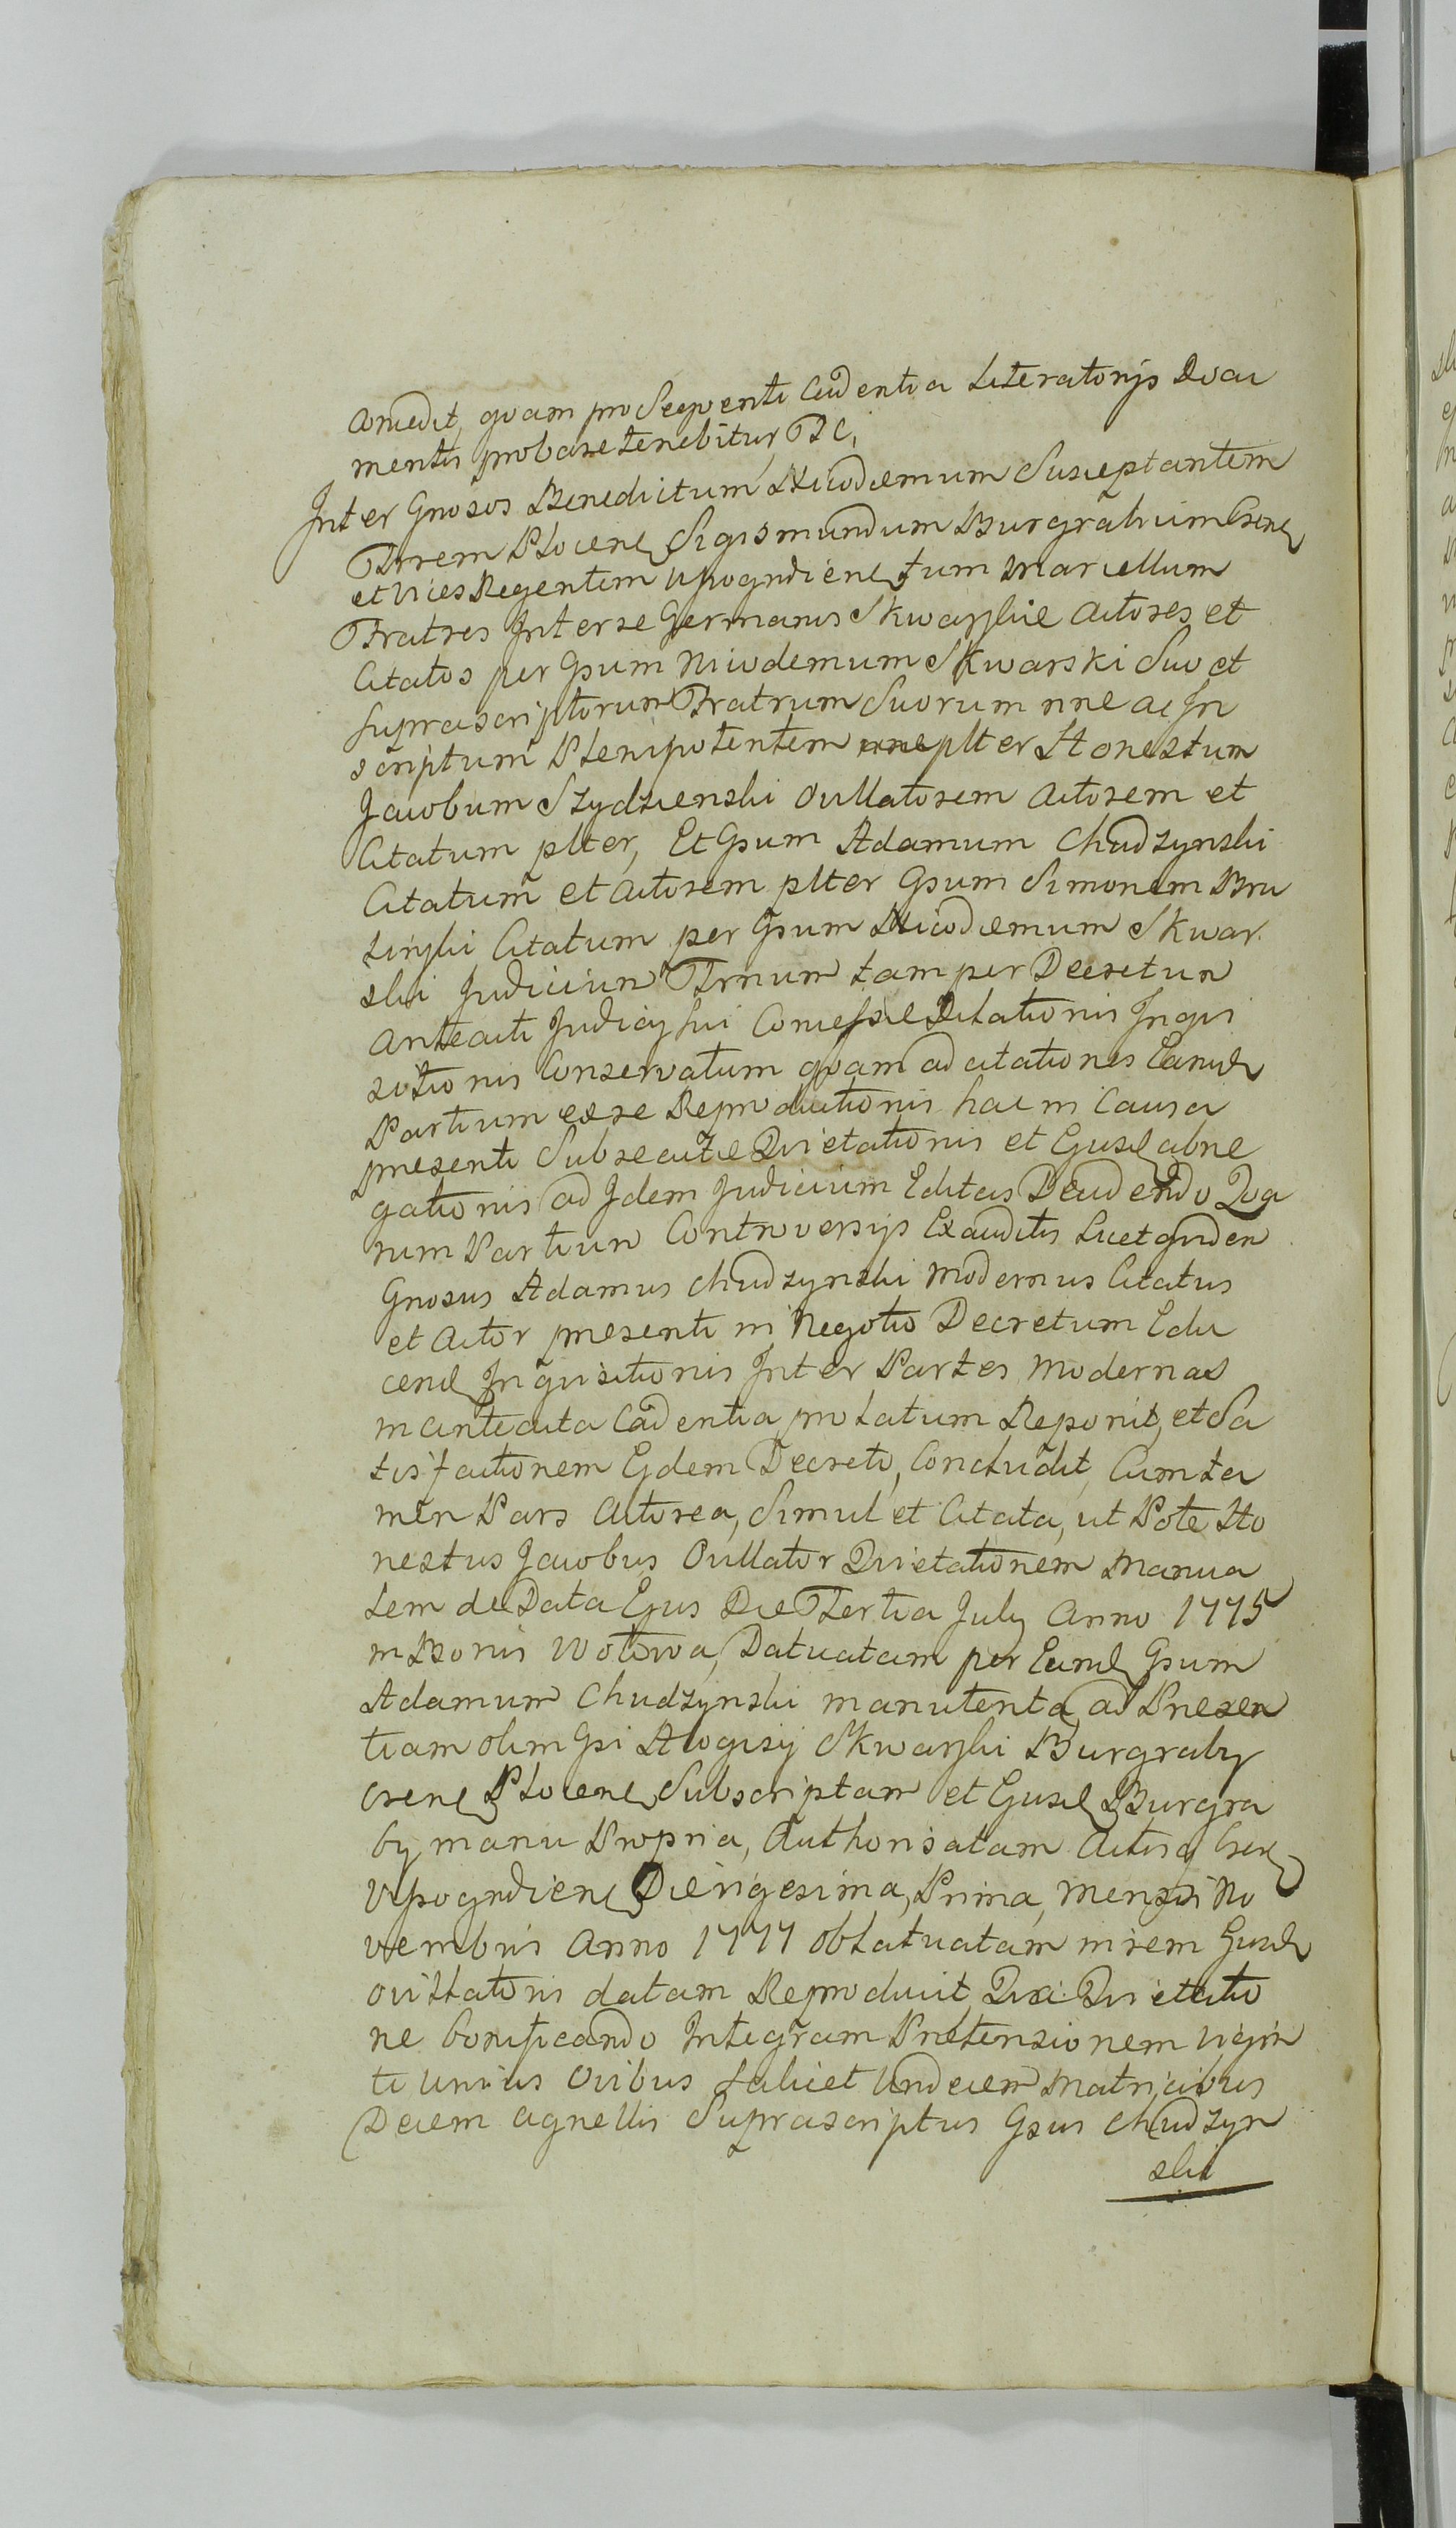 Concedit, quam pro Seqventi Cadentia Literatorijs Docu
mentis probare tenebitur, TC,
Inter Gnosos Benedictum Nicodemum Susceptantem
Trrem Plocens Sigismundum Burgrabium Csens
et Vices Regentem Wyogrdiens tum Marcellum
Fratres Inter se Germanos Skwarskie Actores et
Citatos per Gsum Nicodemum Skwarski Suo et
Suprascriptorum Fratrum Suorum nne ac In
scriptum Plenipotentem plter Honestum
Jacobum Szydzienski Ovillatorem Actorem et
Citatum plter, Et Gsum Adamum Chudzynski
Citatum et Actorem plter Gsum Simonem Bru
zinski Citatum per Gsum Nicodemum Skwar
ski Judicium Trnum tam per Decretum
Anteacti Judicij sui Concessae Dilationis Inqvi
sitionis Conservatum qvam ad citationes Earund
Partium ex se Reproductionis hac in Causa
presenti Subsecutae Qvietationis et Ejusd abne
gationis ad Idem Judicium Editas Decidendo Qva
rum Partium Controversijs Exauditis Licet qvidem
Gnosus Adamus Chudzynski Modernus Citatus
et Actor presenti in Negotio Decretum Edu
cend Inqvisitionis Inter Partes Modernas
in anteacta Cadentia prolatum Reponit, et Sa
tisfactionem Ejdem Decreto, Concludit, Cum ta
men Pars Actorea, Simul et Citata, ut Pote Ho
nestus Jacobus Ovillator Qvietationem Manua
lem de Data Ejus Die Tertia July Anno 1775
in Bonis Wotowa, Datuatam per Eund Gsum
Adamum Chudzynski manutenta, ad Presen
tiam olim Gsi Aloyisij Skwarski Burgraby
Csens Plocens Subscriptam et Ejusd Burgra
by manu Propria, Authorisatam Actis Csens
Wyogrdiens Die vigesima, Prima, Mensis No
vembris Anno 1777 oblatuatam in rem Ejusd
ovillatoris datam Reproducit, Qva Qvietatio
ne bonificando Integram Pretensionem vigin
ti unius Ovibus Scilicet Undecem Matricibus
Decem agnellis Suprascriptus Gsus Chudzyn
ski